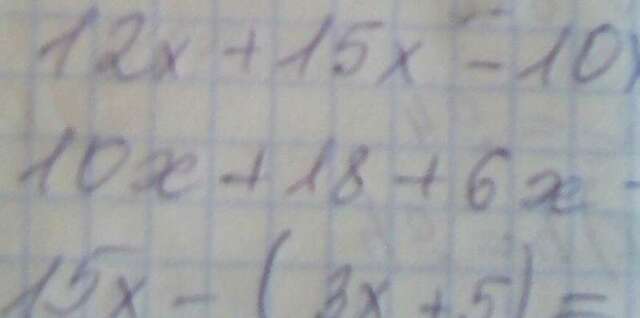 12x + 15x - 10
10x + 18 + 6x -
15x - (3x + 5) =